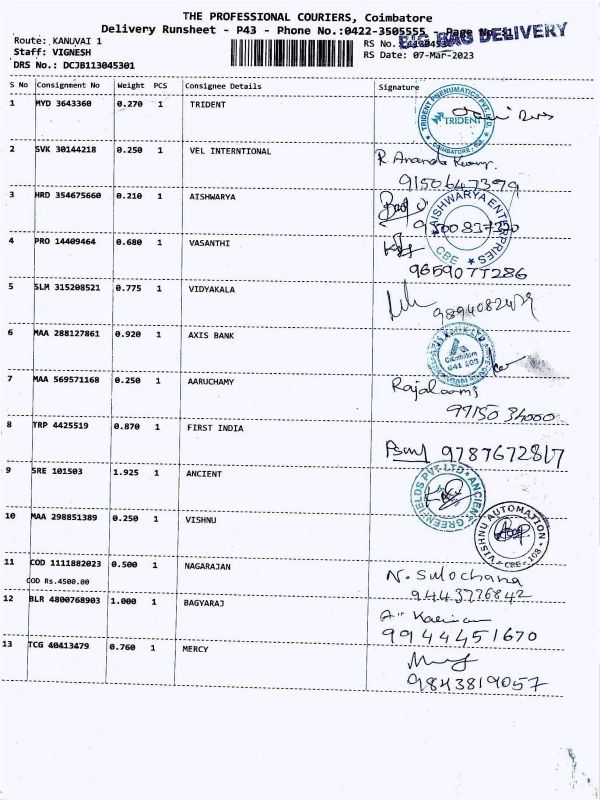 THE PROFESSIONAL COURIERS, Coimbatore
Delivery Runsheet - P43 - Phone No.:0422-3505555 Page No
BIG BAG DELIVERY
Route: KANUVAI 1
RS No.
Staff: VIGNESH
RS Date: 07-Mar-2023
DRS No.: DCJB113045301
S No Consignment No Weight PCS Consignee Details Signature
1 MYD 3643360 0.270 1 TRIDENT
TRIDENT PNEUMATICS PVT. LTD. TRIDENT COIMBATORE
2 SVK 30144218 0.250 1 VEL INTERNTIONAL
R Ananda
9150647399
3 HRD 354675660 0.210 1 AISHWARYA
AISHWARYA ENTERPRISES CBE
4 PRO 14409464 0.680 1 VASANTHI
9659077286
5 SLM 315208521 0.775 1 VIDYAKALA
6 MAA 288127861 0.920 1 AXIS BANK
Coimbatore
641 108
7 MAA 569571168 0.250 1 AARUCHAMY
99150 34000
8 TRP 4425519 0.870 1 FIRST INDIA
9787672817
9 SRE 101503 1.925 1 ANCIENT
ANCIENT GREENFIELDS PVT LTD
10 MAA 298851389 0.250 1 VISHNU
VISHNU AUTOMATION CBE-108
11 COD 1111882023 0.500 1 NAGARAJAN
COD Rs.4500.00
N. Sulochana
9443776842
12 BLR 4800768903 1.000 1 BAGYARAJ
9944451670
13 TCG 40413479 0.760 1 MERCY
9843819057